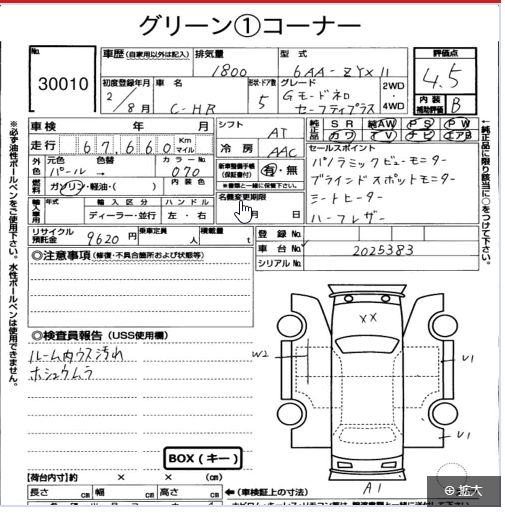 グリーン①コーナー
No.
30010
車歴(自家用以外は記入)
排気量
1800
型式
6AA-ZYX11
評価点
4.5
初度登録年月
2/8月
車名
C-HR
形状・ドア数
5
グレード
Gモードネロ
セーフティプラス
2WD
・
4WD
内装
補助評価
B
車検 年 月
シフト
AT
純正品
SR
純AW
PS
PW
カワ
TV
ナビ
エアB
走行
67,660
Km
マイル
冷房
AAC
セールスポイント
パノラミックビューモニター
ブラインドスポットモニター
シートヒーター
ハーフレザー
外色
元色
パール
色替
→
カラーNo.
070
新車整備手帳
(保証書付)
有・無
※書類と一緒に保管下さい。
燃料
ガソリン・軽油・( )
内装色
名義変更期限
月 日
輸入車用
年式
輸入区分
ディーラー・並行
ハンドル
左・右
リサイクル
預託金
9620円
乗車定員
人
積載量
t
登録No.
車台No.
2025383
シリアルNo.
◎注意事項(修復・不具合箇所および状態等)
◎検査員報告(USS使用欄)
ルーム内ウス汚れ
ホシュウムラ
BOX(キー)
XX
W2
U1
U1
A1
【荷台内寸】約 × × (cm)
長さ cm
幅 cm
高さ cm
←(車検証上の寸法)
※必ず油性ボールペンをご使用下さい。水性ボールペンは使用できません。
←純正品に限り該当に○をつけて下さい。
拡大